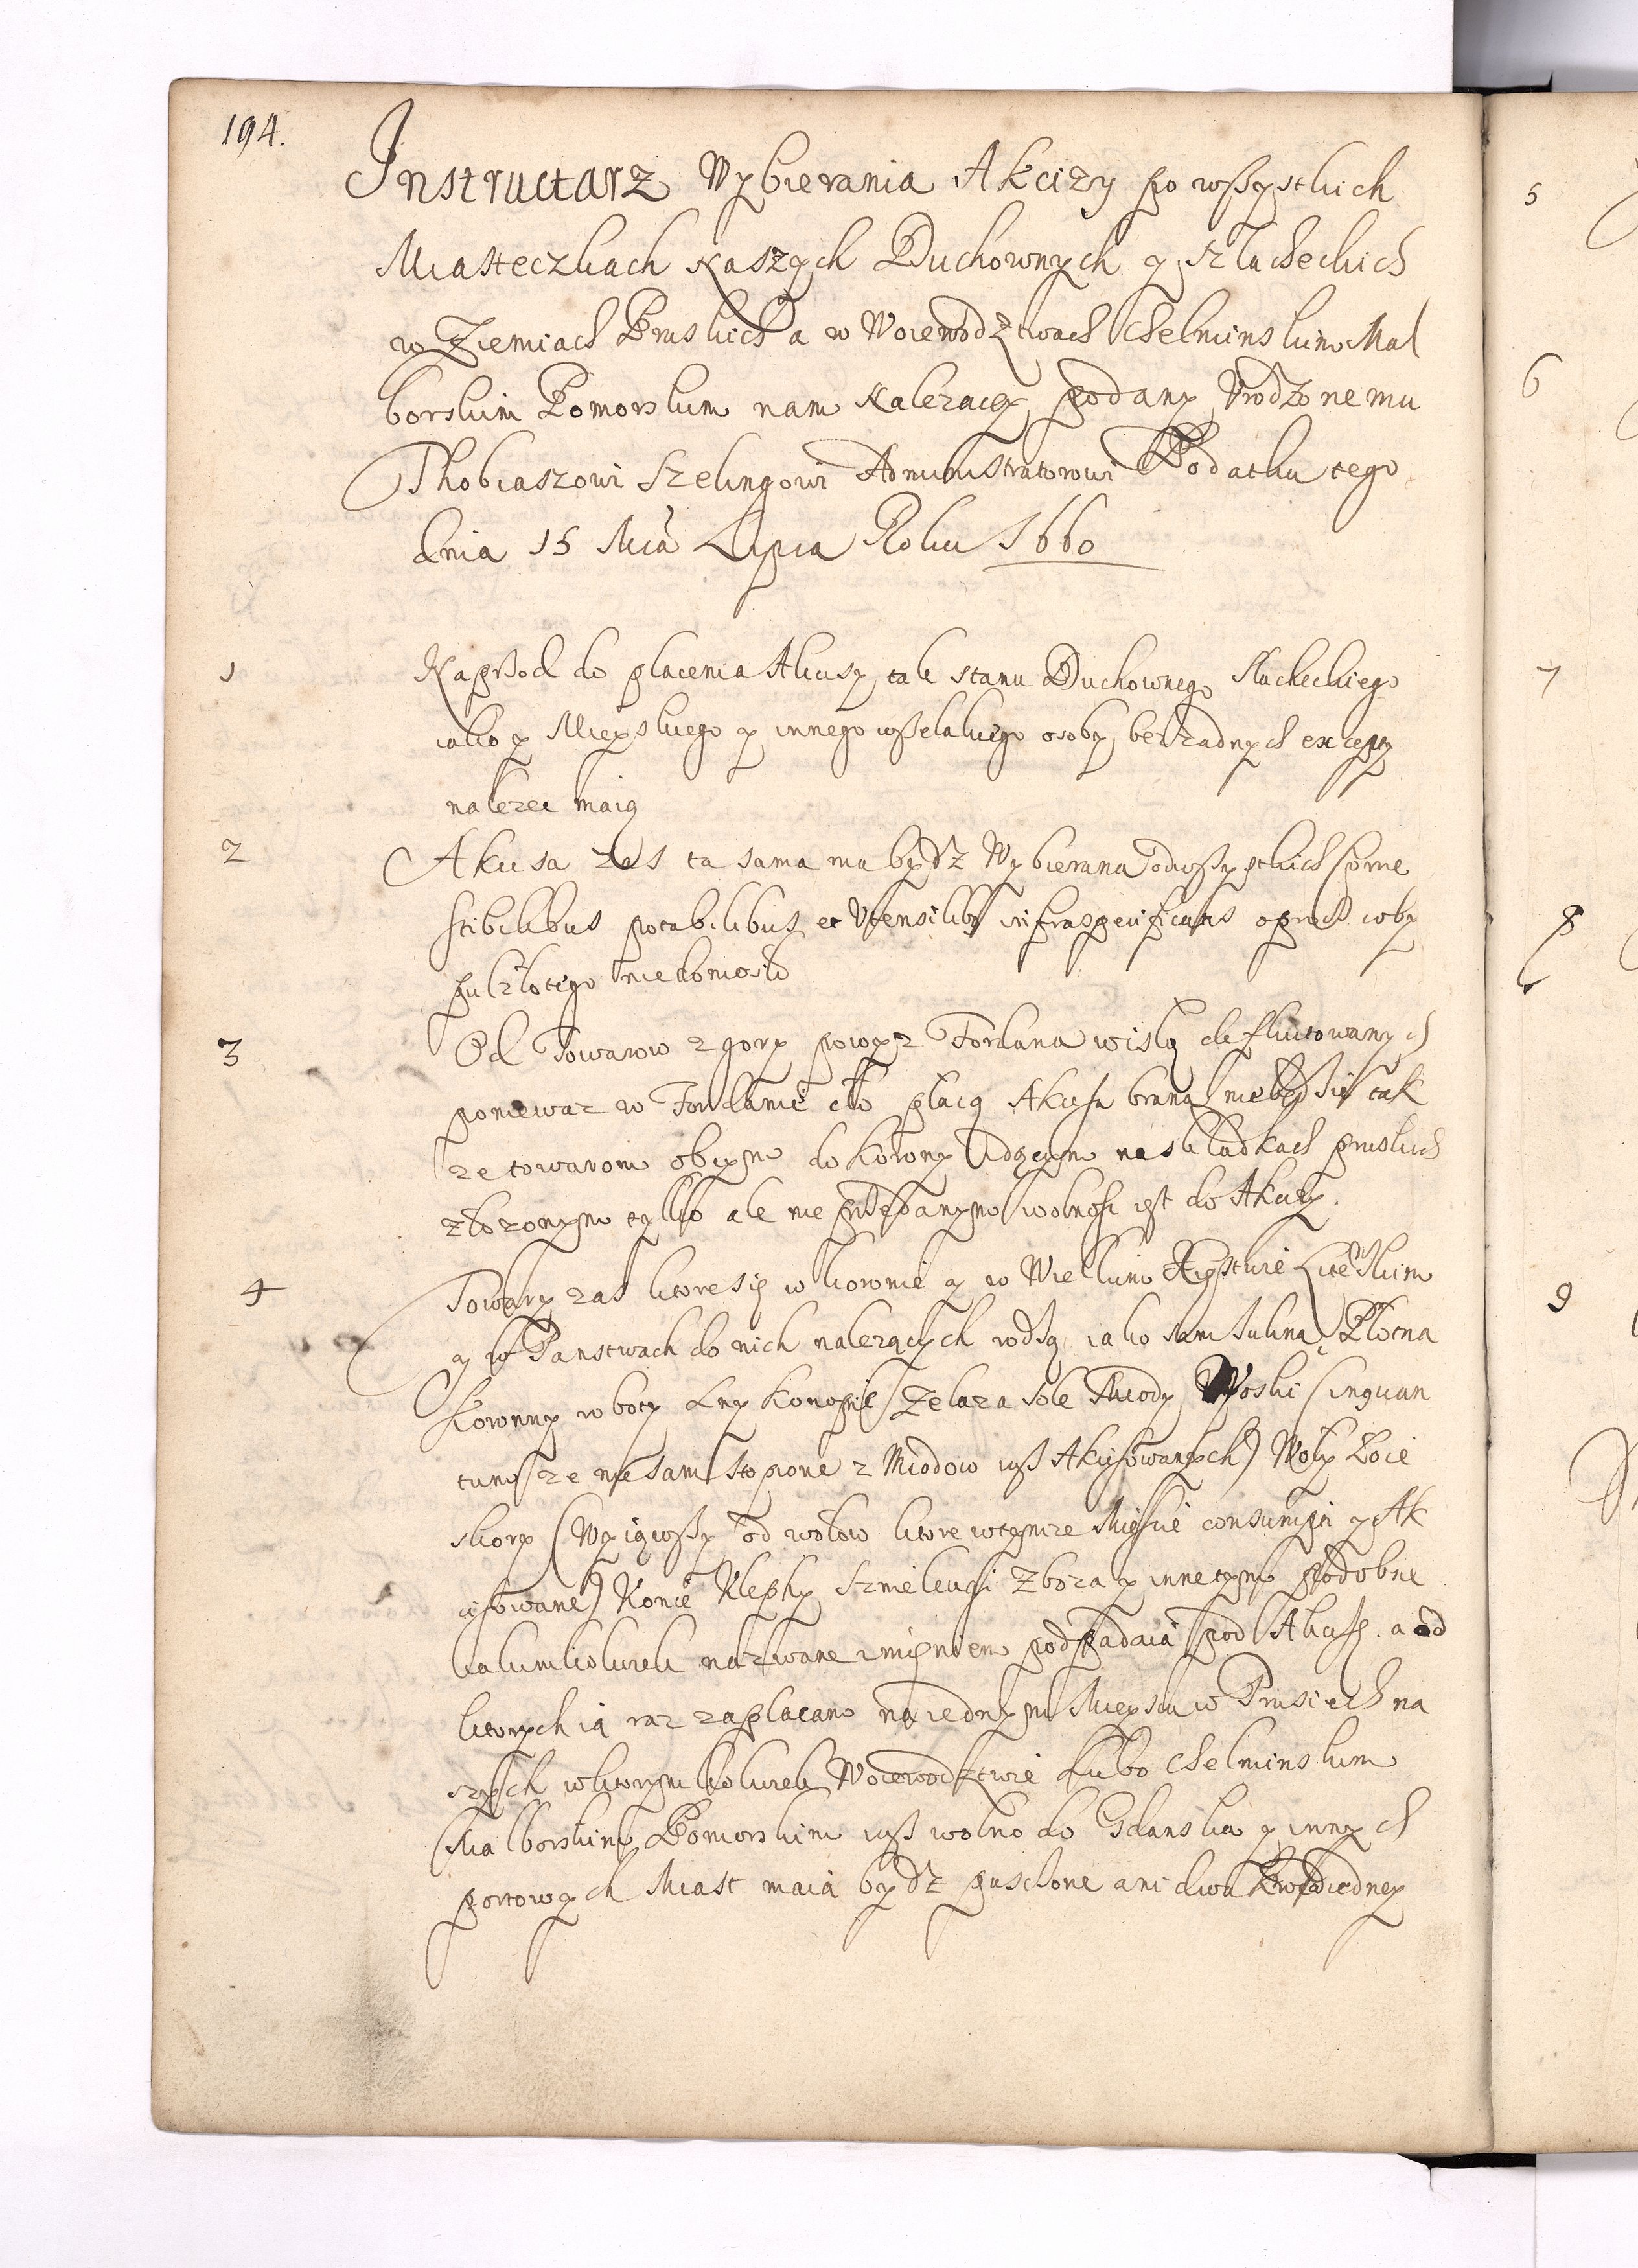 194.
Instructarz Wybierania Akcizy po wszystkich
Miasteczkach Naszych Duchownych y Szlacheckich
w Ziemiach Pruskich a w Woiewodztwach Chelminskim Mal
borskim Pomorskim nam Należący podany Urodzonemu
Thobiaszowi Szelingowi Administratorowi Podatku tego
dnia 15 Mca Lipca Roku 1660
1 Naprzod do placenia Akcisy tak stanu Duchownego Slacheckiego
iako y Mieyskiego y innego wszelakiego osoby bez zadnych excepty
nalezec maią
2 Akcisa zas ta sama ma bydz Wybierana od wszystkich Come
stibilibus potabilibus et Utensilibus infraspecificatis oprocz coby
pul zlotego nie donosilo
3 Od Towarow z gory powyz Fordana wislą defluitowanych
poniewaz w Fordanie clo placą Akcisa brana niebędzie tak
ze towarom obcym do Korony idącym na skladkach pruskich
zlozonym tylko ale nie przedanym wolnosc iest do Akcizy.
4 Towary zas ktore się w Koronie y w Wielkim Xięstwie Litewskim
y w Panstwach do nich nalezących rodzą iako sam Sukna, Plotna
Koronny roboty Lny Konopie Zelaza Sole Miody Woski (inquan
tum ze nie sam stopione z Miodow iusz Akcisowanych) Woly Loie
skory (Wyiąwszy od wolow ktore w tymze Miescie consumpti y Ak
cisowane) Konie Klepky Smielcugi Zboza y inne tym podobne
iakimkolwiek nazwane imieniem podpadaią pod Akcisę. a od
ktorych ią raz zaplacano na iednym Mieyscu w Prusiech na
szych w ktorymkolwiek Woiewodztwie Lubo Chelminskim
Malborskim Pomorskim iusz wolno do Gdanska y innych
portowych Miast maią bydz puszczone ani dwa kroc od iedney
5
6
7
8
9